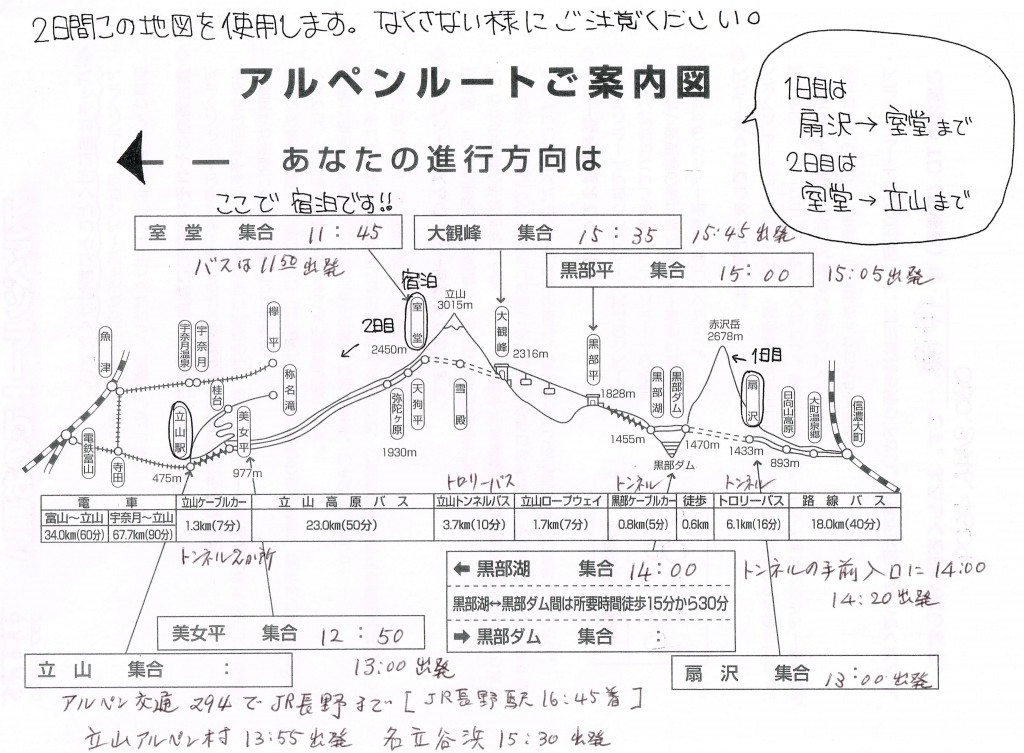 2日間この地図を使用します。なくさない様にご注意ください。
アルペンルートご案内図
あなたの進行方向は
1日目は
扇沢→室堂まで
2日目は
室堂→立山まで
ここで宿泊です!!
室堂 集合 11:45
バスは1150出発
大観峰 集合 15:35 15:45出発
黒部平 集合 15:00 15:05出発
宿泊
2日目
1日目
立山
3015m
赤沢岳
2678m
室堂
2450m
大観峰
2316m
黒部平
1828m
魚津
宇奈月温泉
宇奈月
欅平
称名滝
桂台
立山駅
美女平
弥陀ヶ原
天狗平
雪殿
黒部湖
黒部ダム
扇沢
日向山高原
大町温泉郷
信濃大町
電鉄富山
寺田
475m
977m
1930m
1455m
黒部ダム
1470m
1433m
893m
トロリーバス
トンネル
トンネル
電車 立山ケーブルカー 立山高原バス 立山トンネルバス 立山ロープウェイ 黒部ケーブルカー 徒歩 トロリーバス 路線バス
富山〜立山 宇奈月〜立山
34.0km(60分) 67.7km(90分) 1.3km(7分) 23.0km(50分) 3.7km(10分) 1.7km(7分) 0.8km(5分) 0.6km 6.1km(16分) 18.0km(40分)
トンネル2か所
← 黒部湖 集合 14:00
黒部湖↔黒部ダム間は所要時間徒歩15分から30分
→ 黒部ダム 集合 :
トンネルの手前入口に14:00
14:20出発
美女平 集合 12:50
13:00出発
立山 集合 :
扇沢 集合 13:00出発
アルペン交通294でJR長野まで[JR長野駅16:45着]
立山アルペン村13:55出発 名立谷浜15:30出発